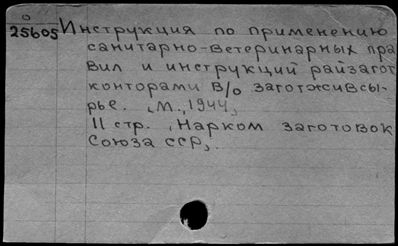 О
25605 Инструкция по применению
санитарно-ветеринарных пра
вил и инструкций райзагот
конторами В/О Заготживсы-
рье. М., 1944,
11 стр. , Нарком заготовок
Союза ССР,.